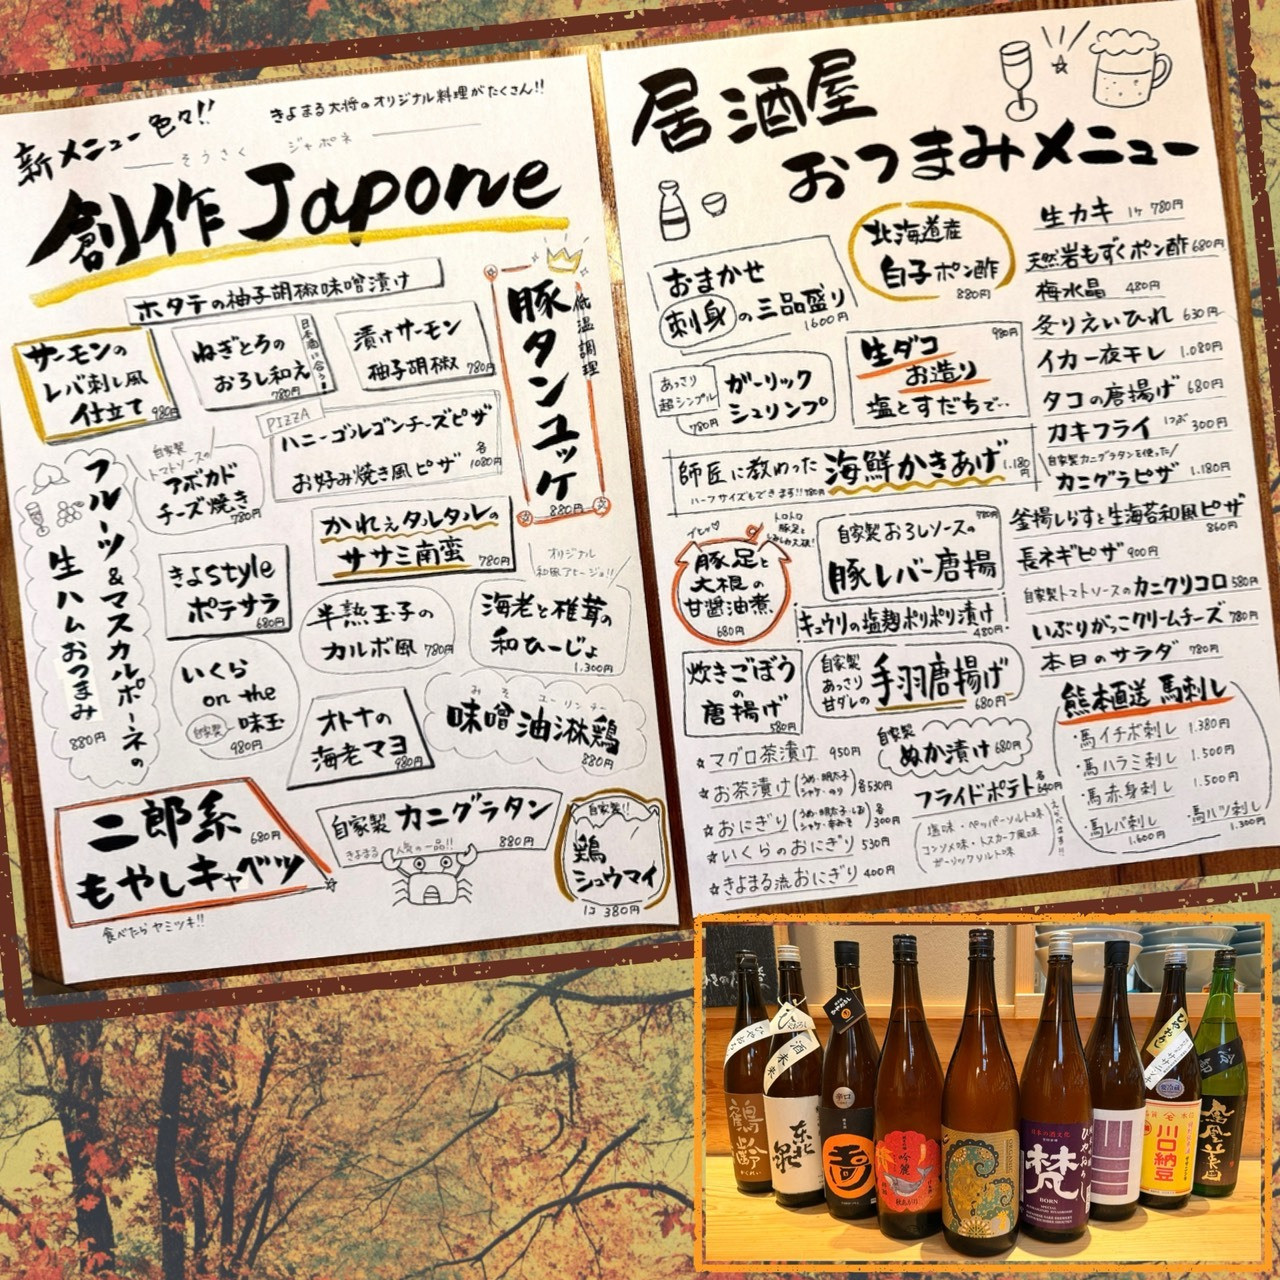 新メニュー色々!!
きよまる大将のオリジナル料理がたくさん!!
そうさく ジャポネ
創作Japone
ホタテの柚子胡椒味噌漬け
サーモンの
レバ刺し風
仕立て 980円
ねぎとろの
おろし和え
780円
日本酒に合う!
漬けサーモン
柚子胡椒 780円
低温調理
豚タンユッケ
880円
PIZZA
ハニーゴルゴンチーズピザ
お好み焼き風ピザ 各1080円
自家製
トマトソースの
アボカド
チーズ焼き
780円
かれぇタルタルの
ササミ南蛮 780円
フルーツ&マスカルポーネの
生ハムおつまみ
880円
きよstyle
ポテサラ
680円
半熟玉子の
カルボ風 780円
オリジナル
和風アヒージョ!!
海老と椎茸の
和ひーじょ
1.300円
いくら
on the
自家製 味玉
980円
オトナの
海老マヨ
980円
みそ ユーリンチー
味噌油淋鶏
880円
二郎系 680円
もやしキャベツ
食べたらヤミツキ!!
自家製 カニグラタン
880円
きよまる人気の一品!!
自家製!!
鶏
シュウマイ
1コ 380円
居酒屋
おつまみメニュー
おまかせ
刺身の三品盛り
1600円
北海道産
白子ポン酢
880円
あっさり
超シンプル
ガーリック
シュリンプ
780円
980円
生ダコ
お造り
塩とすだちで‥
師匠に教わった 海鮮かきあげ 1.180円
ハーフサイズもできます!! 780円
豚足と
大根の
甘醤油煮
680円
自家製おろしソースの 780円
豚レバー唐揚
キュウリの塩麹ポリポリ漬け
480円
炊きごぼう
の
唐揚げ
580円
自家製
あっさり
甘ダレの
手羽唐揚げ
680円
自家製
ぬか漬け 680円
☆マグロ茶漬け 950円
☆お茶漬け(うめ・明太子 シャケ・のり) 各530円
☆おにぎり 各300円
☆いくらのおにぎり 530円
☆きよまる流おにぎり 400円
フライドポテト 各640円
塩味・ペッパーソルト味
コンソメ味・トスカーナ風味
ガーリックソルト味
えらべます!!
生カキ 1ケ 780円
天然岩もずくポン酢 680円
梅水晶 480円
炙りえいひれ 630円
イカ一夜干し 1.080円
タコの唐揚げ 680円
カキフライ 1つぶ 300円
自家製カニグラタンを使った
カニグラピザ 1.180円
釜揚しらすと生海苔和風ピザ
860円
長ネギピザ 900円
自家製トマトソースのカニクリコロ 580円
いぶりがっこクリームチーズ 780円
本日のサラダ 780円
熊本直送 馬刺し
・馬イチボ刺し 1.380円
・馬ハラミ刺し 1.500円
・馬赤身刺し 1.500円
・馬レバ刺し 1.600円
・馬ハツ刺し 1.300円
ひやおろし
鶴齢
東北泉
辛口
吟麗
梵
BORN
ひやおろし
川口納豆
鳳凰美田